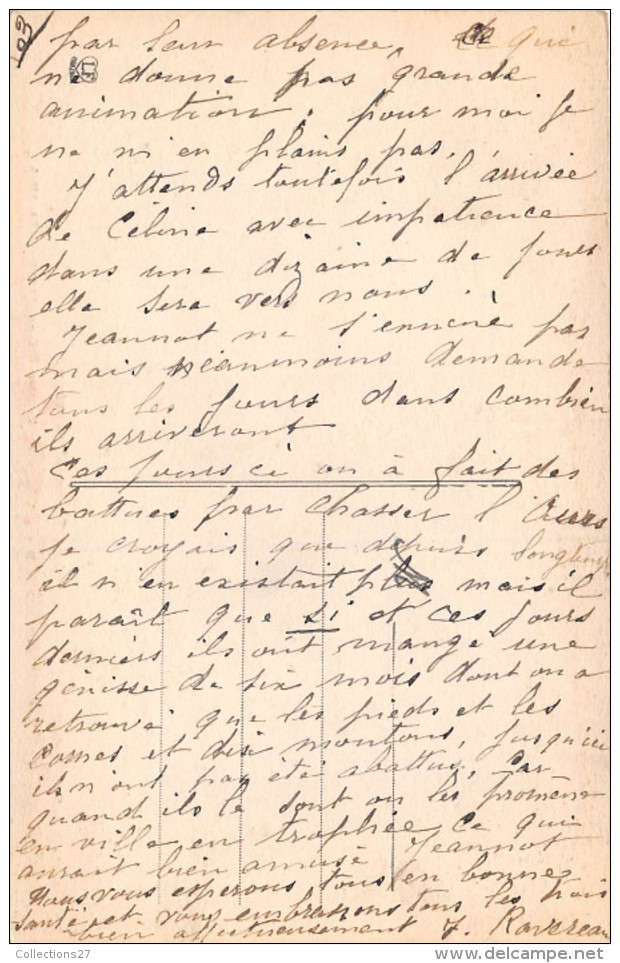 par leur absence, Ce qui
ne donne pas grande
animation. pour moi je
ne m'en plains pas.
J'attends toutefois l'arrivée
de Céline avec impatience
dans une dizaine de jours
elle sera vers nous.
Jeannot ne s'ennuie pas
mais néanmoins demande
tous les jours dans combien
ils arriveront
Ces jours ci on à fait des
battues par chasser l'Ours
je croyais que depuis longtemps
il n'en existait plus mais il
paraît que Si et ces jours
derniers ils ont mangé une
génisse de six mois dont on a
retrouvé que les pieds et les
cornes et dix moutons, jusqu'ici
ils n'ont pas été abattus, Car
quand ils le sont on les promène
en ville en trophée Ce qui
aurait bien amusé Jeannot
Nous vous esperons tous en bonne
Santé et vous embrassons tous les trois
bien affectueusement J. Ravereau
Collections27
delcampe.net